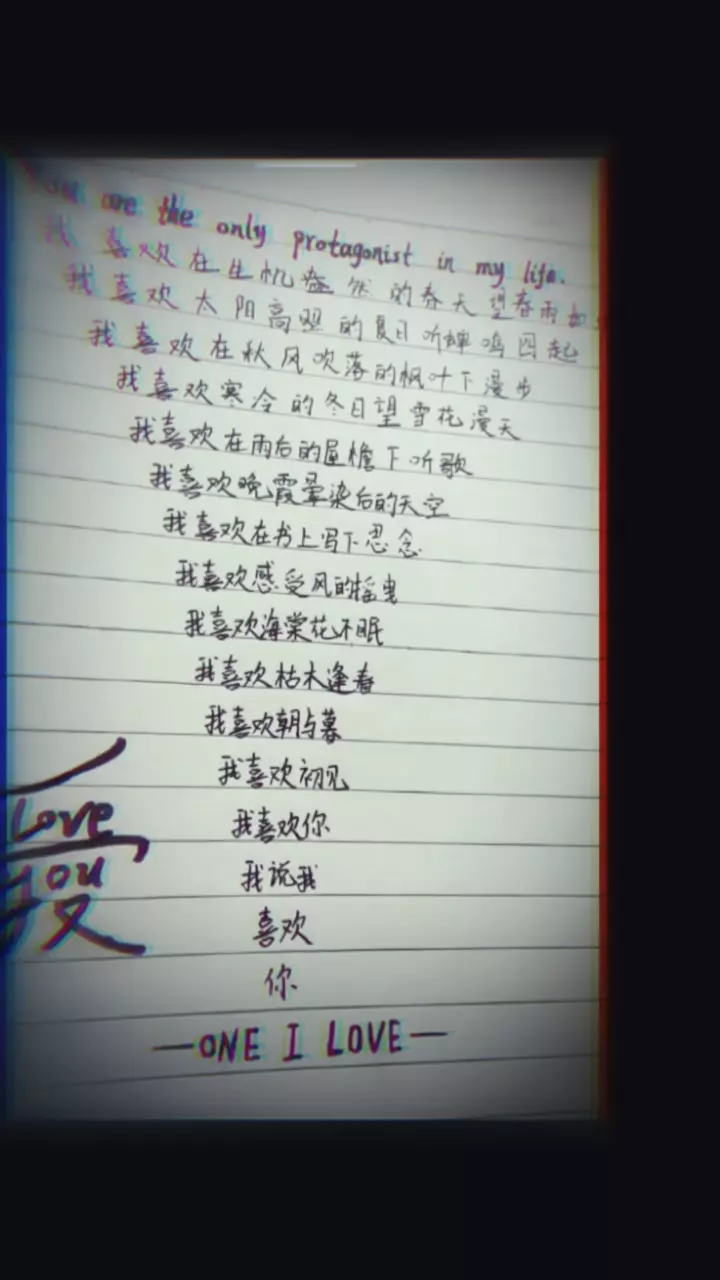 You are the only protagonist in my life.
我喜欢在生机盎然的春天望春雨如
我喜欢太阳高照的夏日听蝉鸣四起
我喜欢在秋风吹落的枫叶下漫步
我喜欢寒冷的冬日望雪花漫天
我喜欢在雨后的屋檐下听歌
我喜欢晚霞晕染后的天空
我喜欢在书上写下思念
我喜欢感受风的摇曳
我喜欢海棠花不眠
我喜欢枯木逢春
我喜欢朝与暮
我喜欢初见
我喜欢你
我说我
喜欢
你
—ONE I LOVE—
Love
you